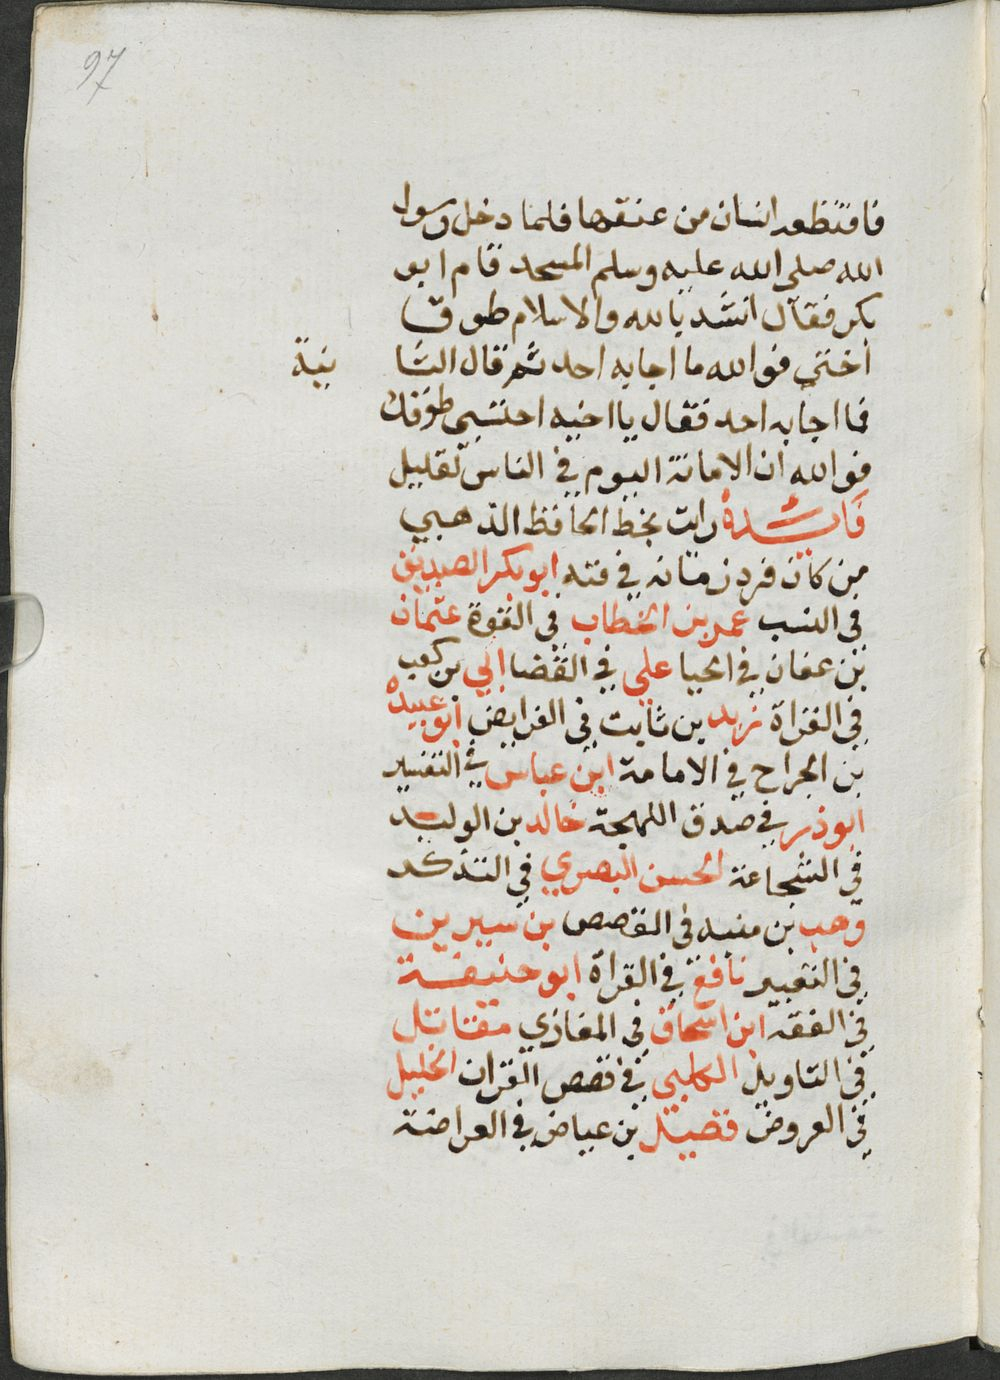 97
فاقتظعه انسان من عنقها فلما دخل رسول
الله صلى الله عليه وسلم المسجد قام ابو
بكر فقال انشد بالله والاسلام طوق
اختي فوالله ما اجابه احد ثم قال الثا نية
فما اجابه احد فقال يا اخيه احتسبي طوقك
فوالله ان الامانة اليوم في الناس لقليل
فائدة رايت بخط الحافظ الذهبي
من كان فرد زمانه في فنه ابو بكر الصديق
في النسب عمر بن الخطاب في القوة عثمان
بن عفان في الحيا علي في القضا ابي بن كعب
في القراة زيد بن ثابت في الفرايض ابو عبيدة
بن الجراح في الامامة ابن عباس في التفسير
ابوذر في صدق اللهجة خالد بن الوليد
في الشجاعة الحسن البصري في التذكير
وهب بن منبه في القصص بن سيرين
في التعبير نافع في القراة ابو حنيفة
في الفقه ابن اسحاق في المغازي مقاتل
في التاويل الكلبي في قصص القران الخليل
في العروض فضيل بن عياض في العراضة